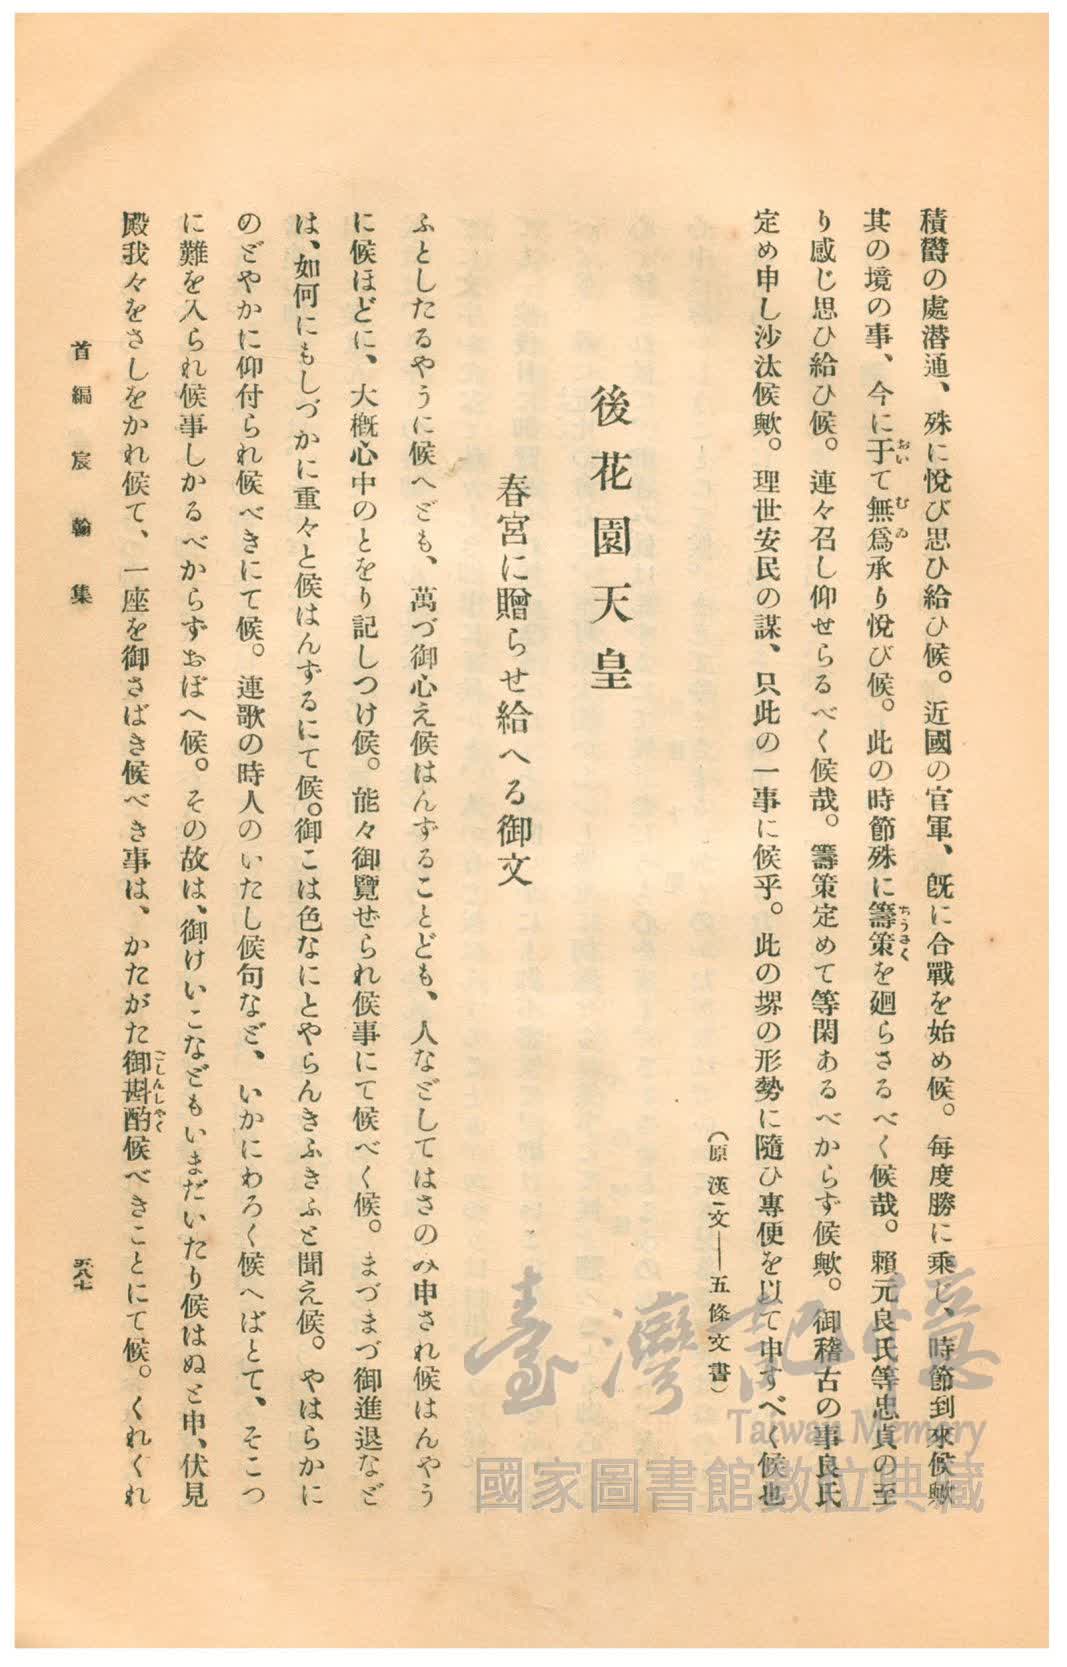 積欝の處潜通、殊に悅び思ひ給ひ候。近國の官軍、旣に合戰を始め候。每度勝に乘じ、時節到來候歟
其の境の事、今に于て無爲承り悅び候。此の時節殊に籌策を廻らさるべく候哉。賴元良氏等忠貞の至
おい
むゐ
ちうさく
り感じ思ひ給ひ候。連々召し仰せらるべく候哉。籌策定めて等閑あるべからず候歟。御稽古の事良氏
定め申し沙汰候歟。理世安民の謀、只此の一事に候乎。此の堺の形勢に隨ひ專便を以て申すべく候也
(原漢文――五條文書)
後花園天皇
春宮に贈らせ給へる御文
ふとしたるやうに候へども、萬づ御心え候はんずることども、人などしてはさのみ申され候はんやう
に候ほどに、大槪心中のとをり記しつけ候。能々御覽ぜられ候事にて候べく候。まづまづ御進退など
は、如何にもしづかに重々と候はんずるにて候。御こは色なにとやらんきふきふと聞え候。やはらかに
のどやかに仰付られ候べきにて候。連歌の時人のいたし候句など、いかにわろく候へばとて、そこつ
に難を入られ候事しかるべからずおぼへ候。その故は、御けいこなどもいまだいたり候はぬと申、伏見
殿我々をさしをかれ候て、一座を御さばき候べき事は、かたがた御斟酌候べきことにて候。くれぐれ
ごしんしやく
首編 宸翰集
五八七
臺灣記憶
Taiwan Memory
國家圖書館數位典藏